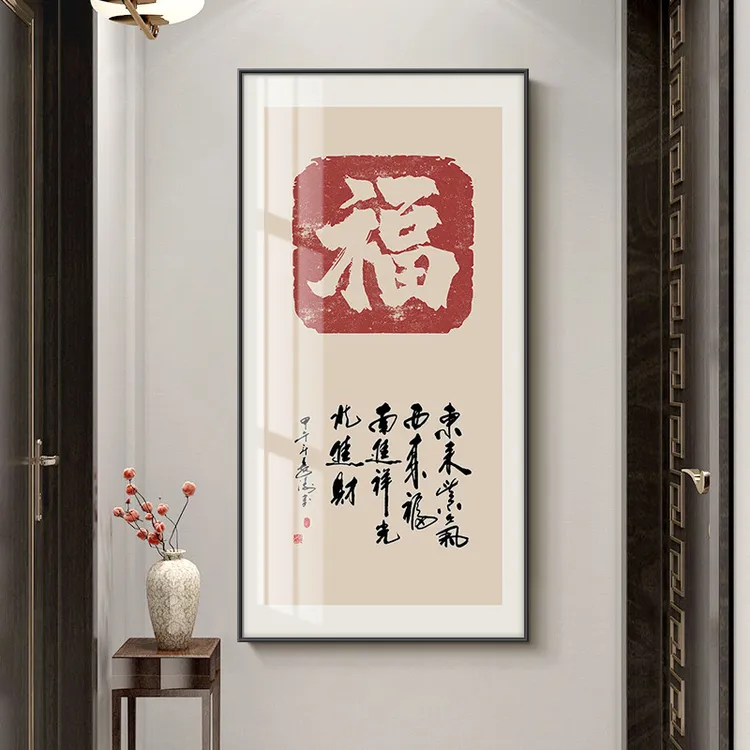 福
東来紫氣
西来福
南進祥光
北進財
甲午